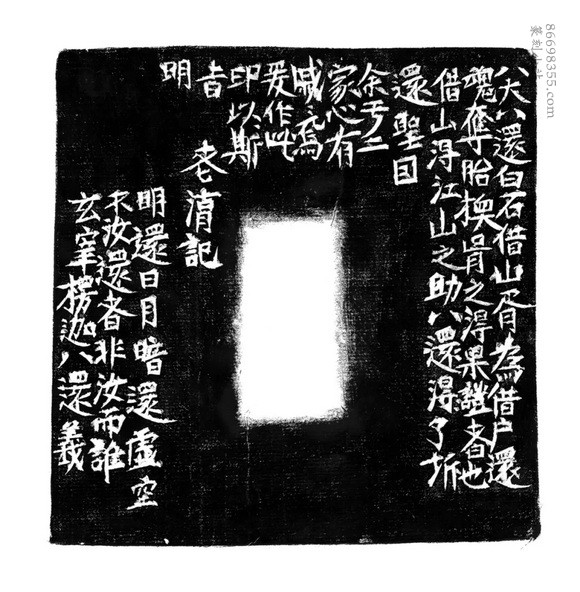 八大八還白石借山胥為借尸還
魂奪胎換骨之淂果證者也
借山淂江山之助八還淂了
還聖因
余于二
家心有
戚〻焉
爰作此
印以斯
吉
明
老淯記
明還日月暗還虛空
不汝還者非汝而誰
玄宰楞迦八還義
86698355.com